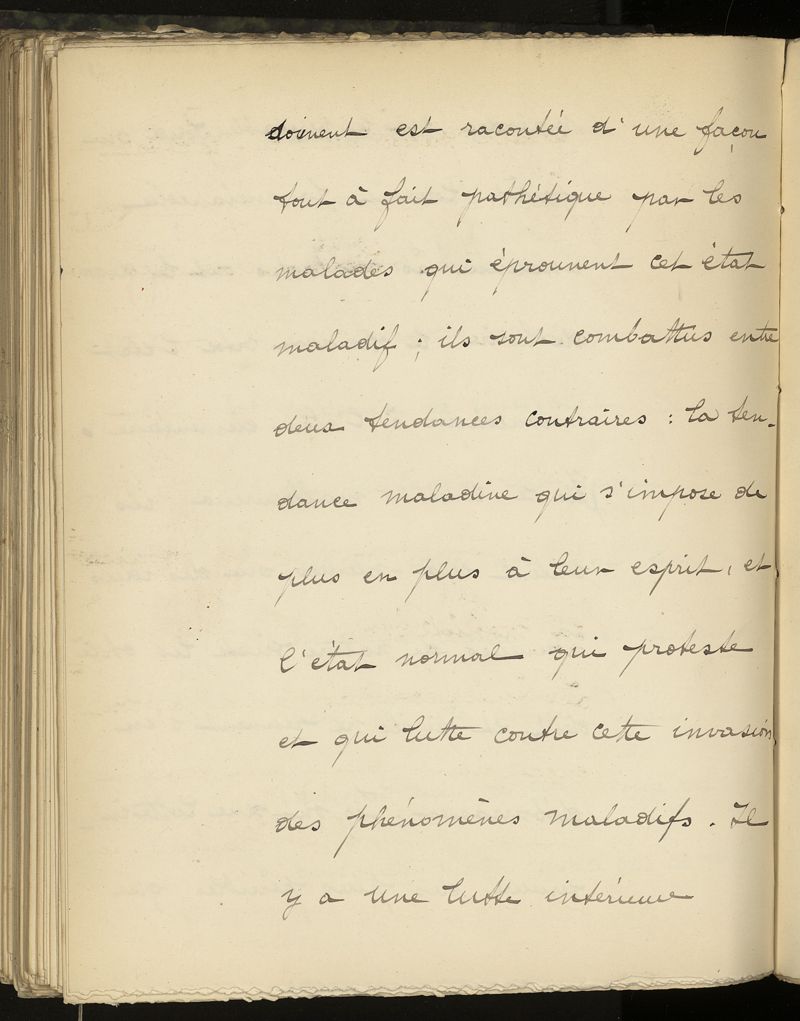 doivent est racontée d'une façon
tout à fait pathétique par les
malades qui éprouvent cet état
maladif ; ils sont combattus entre
deux tendances contraires : la ten-
dance maladive qui s'impose de
plus en plus à leur esprit, et
l'état normal qui proteste
et qui lutte contre cette invasion
des phénomènes maladifs. Il
y a une lutte intérieure